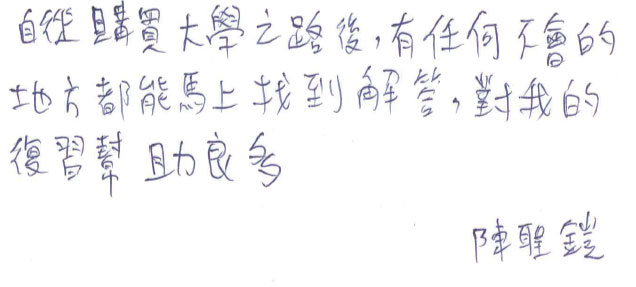 自從購買大學之路後,有任何不會的
地方都能馬上找到解答,對我的
復習幫助良多
陳聖鎧